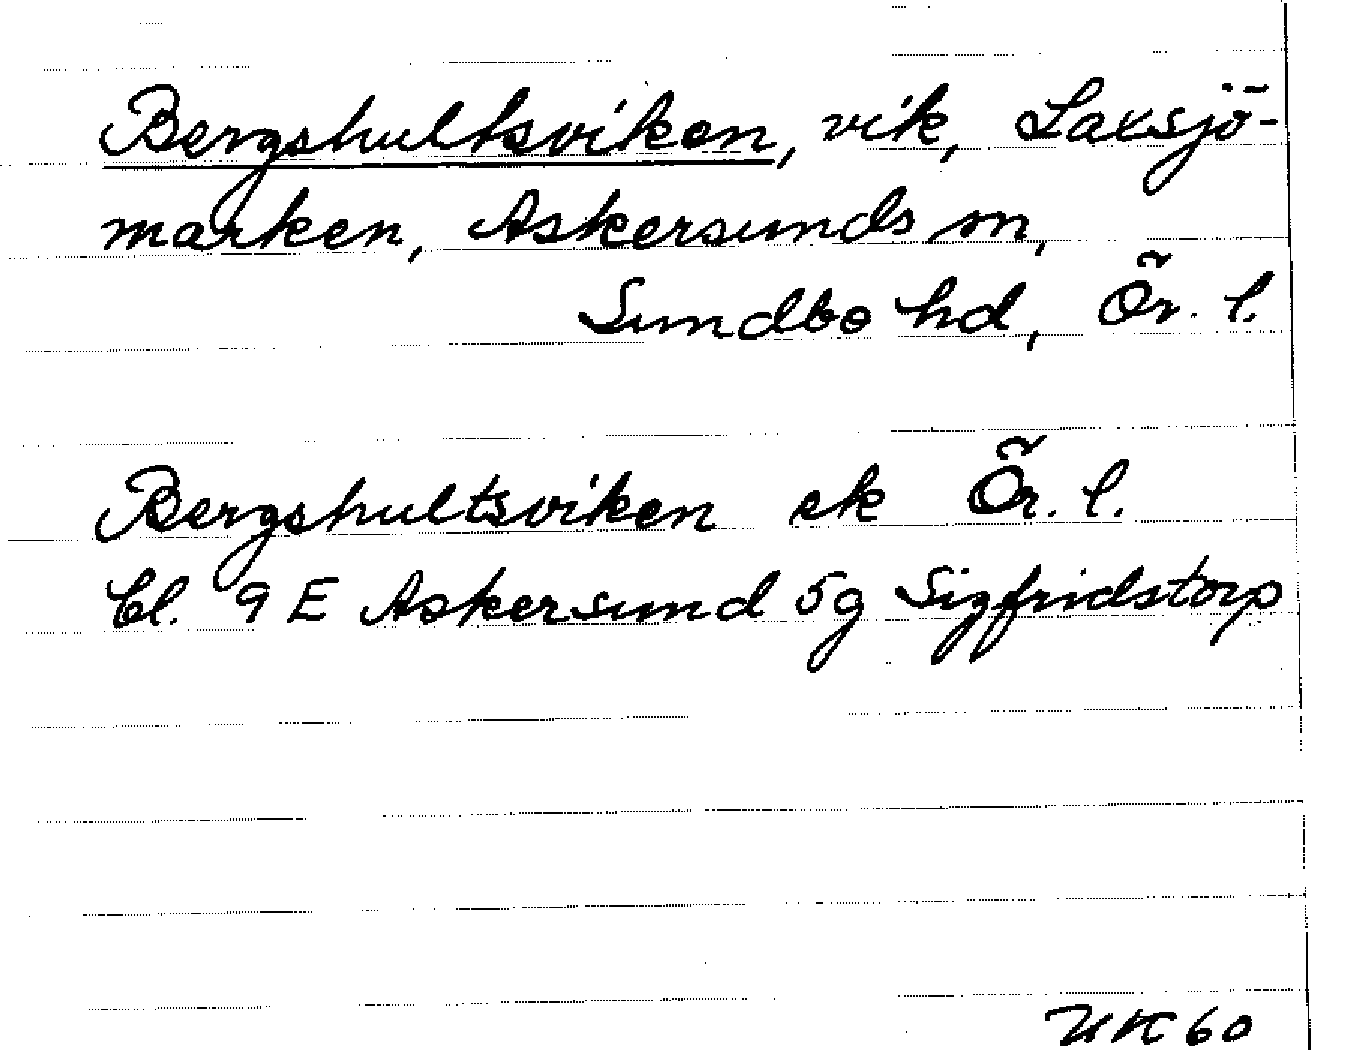 Bergshultsviken, vik, Laxsjö-
marken, Askersunds sn,
Sundbo hd, Ör. l.
Bergshultsviken ek Ör. l.
bl. 9 E Askersund 5g Sigfridstorp
UK 60